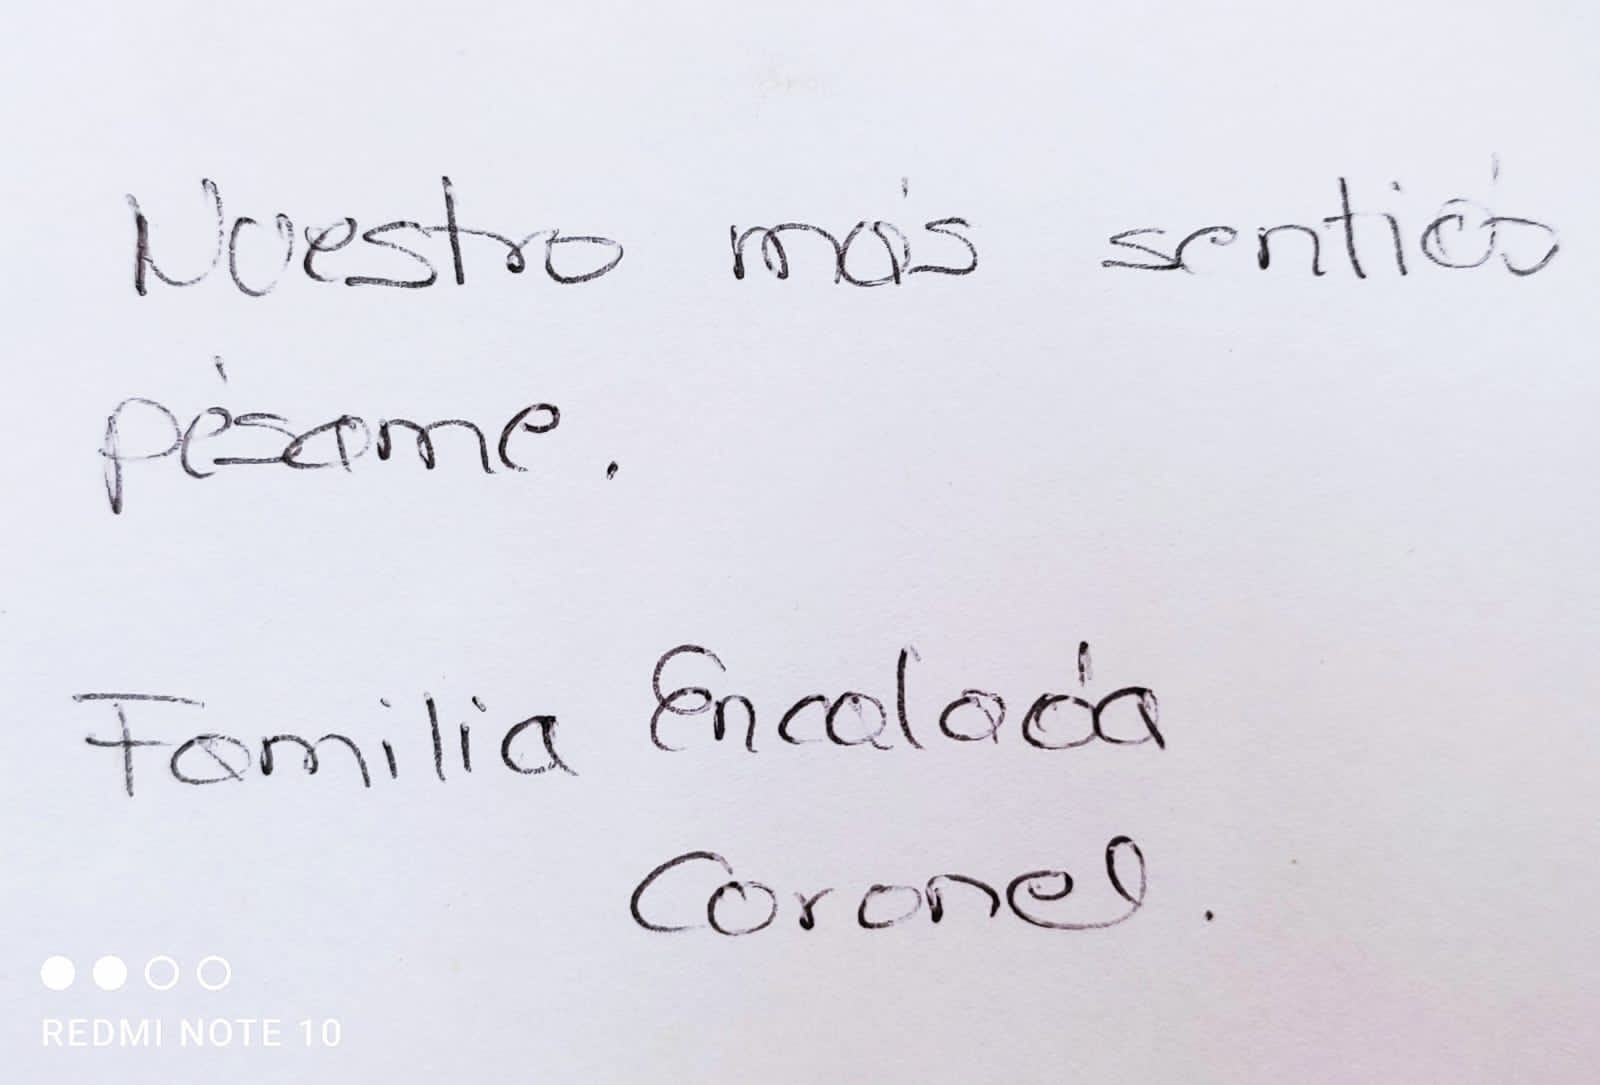 Nuestro más sentido
pésame.
Familia Encalada
Coronel.
REDMI NOTE 10